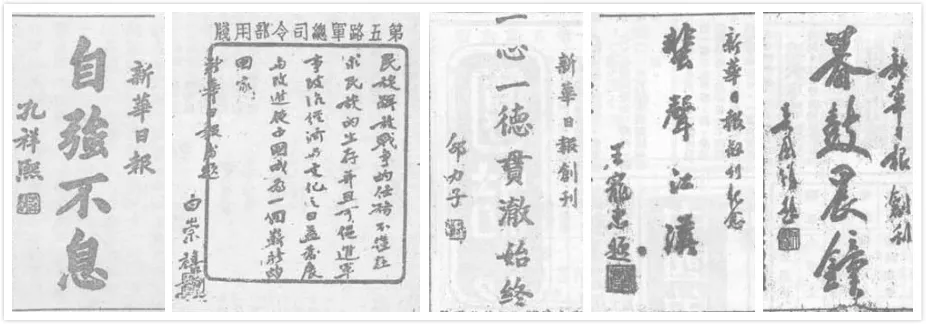 新華日報
自強不息
孔祥熙
第五路軍總司令部用牋
民族解放戰爭的任務不僅在
求民族的生存并且可促進軍
事政治經濟與文化之日益發展
與改進使中國成為一個嶄新的
國家
新華日報屬題
白崇禧
新華日報創刊
一心一德貫澈始終
邵力子
新華日報創刊紀念
蜚聲江漢
王寵惠題
新華日報創刊
暮鼓晨鐘
題